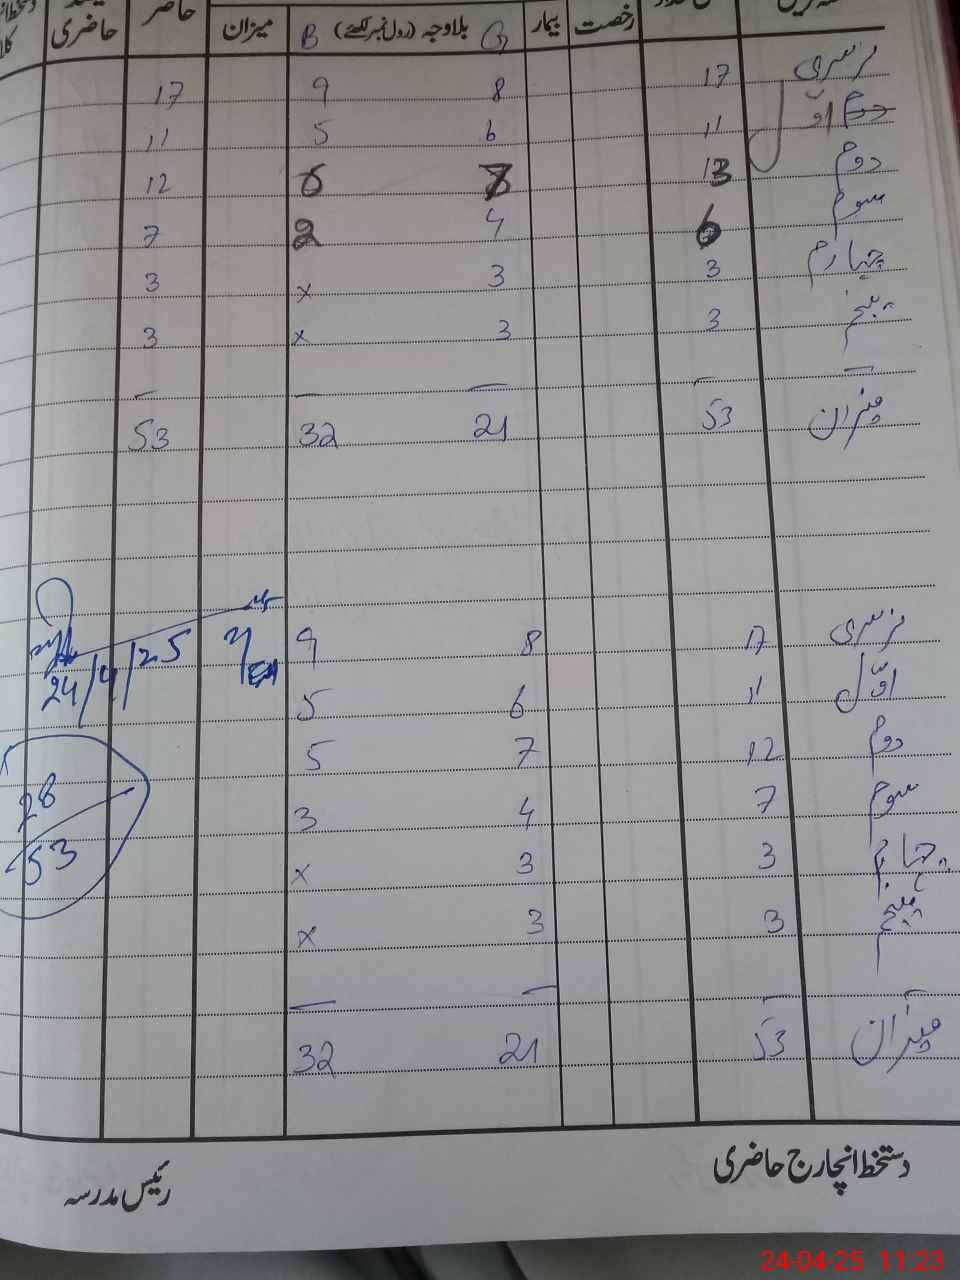 حاضری حاضر
میزان B بلاوجہ (رول نمبر لکھئے) G بیمار رخصت
نرسری 17 8 9 17
اوّل 11 6 5 11
دوم 13 7 6 12
سوم 6 4 2 7
چہارم 3 3 x 3
پنجم 3 3 x 3
میزان 53 21 32 53
نرسری 17 8 9
اوّل 11 6 5
24/4/25
دوم 12 7 5
سوم 7 4 3
28
چہارم 3 3 x
53
پنجم 3 3 x
میزان 53 21 32
دستخط انچارج حاضری
رئیس مدرسہ
24-04-25 11:23